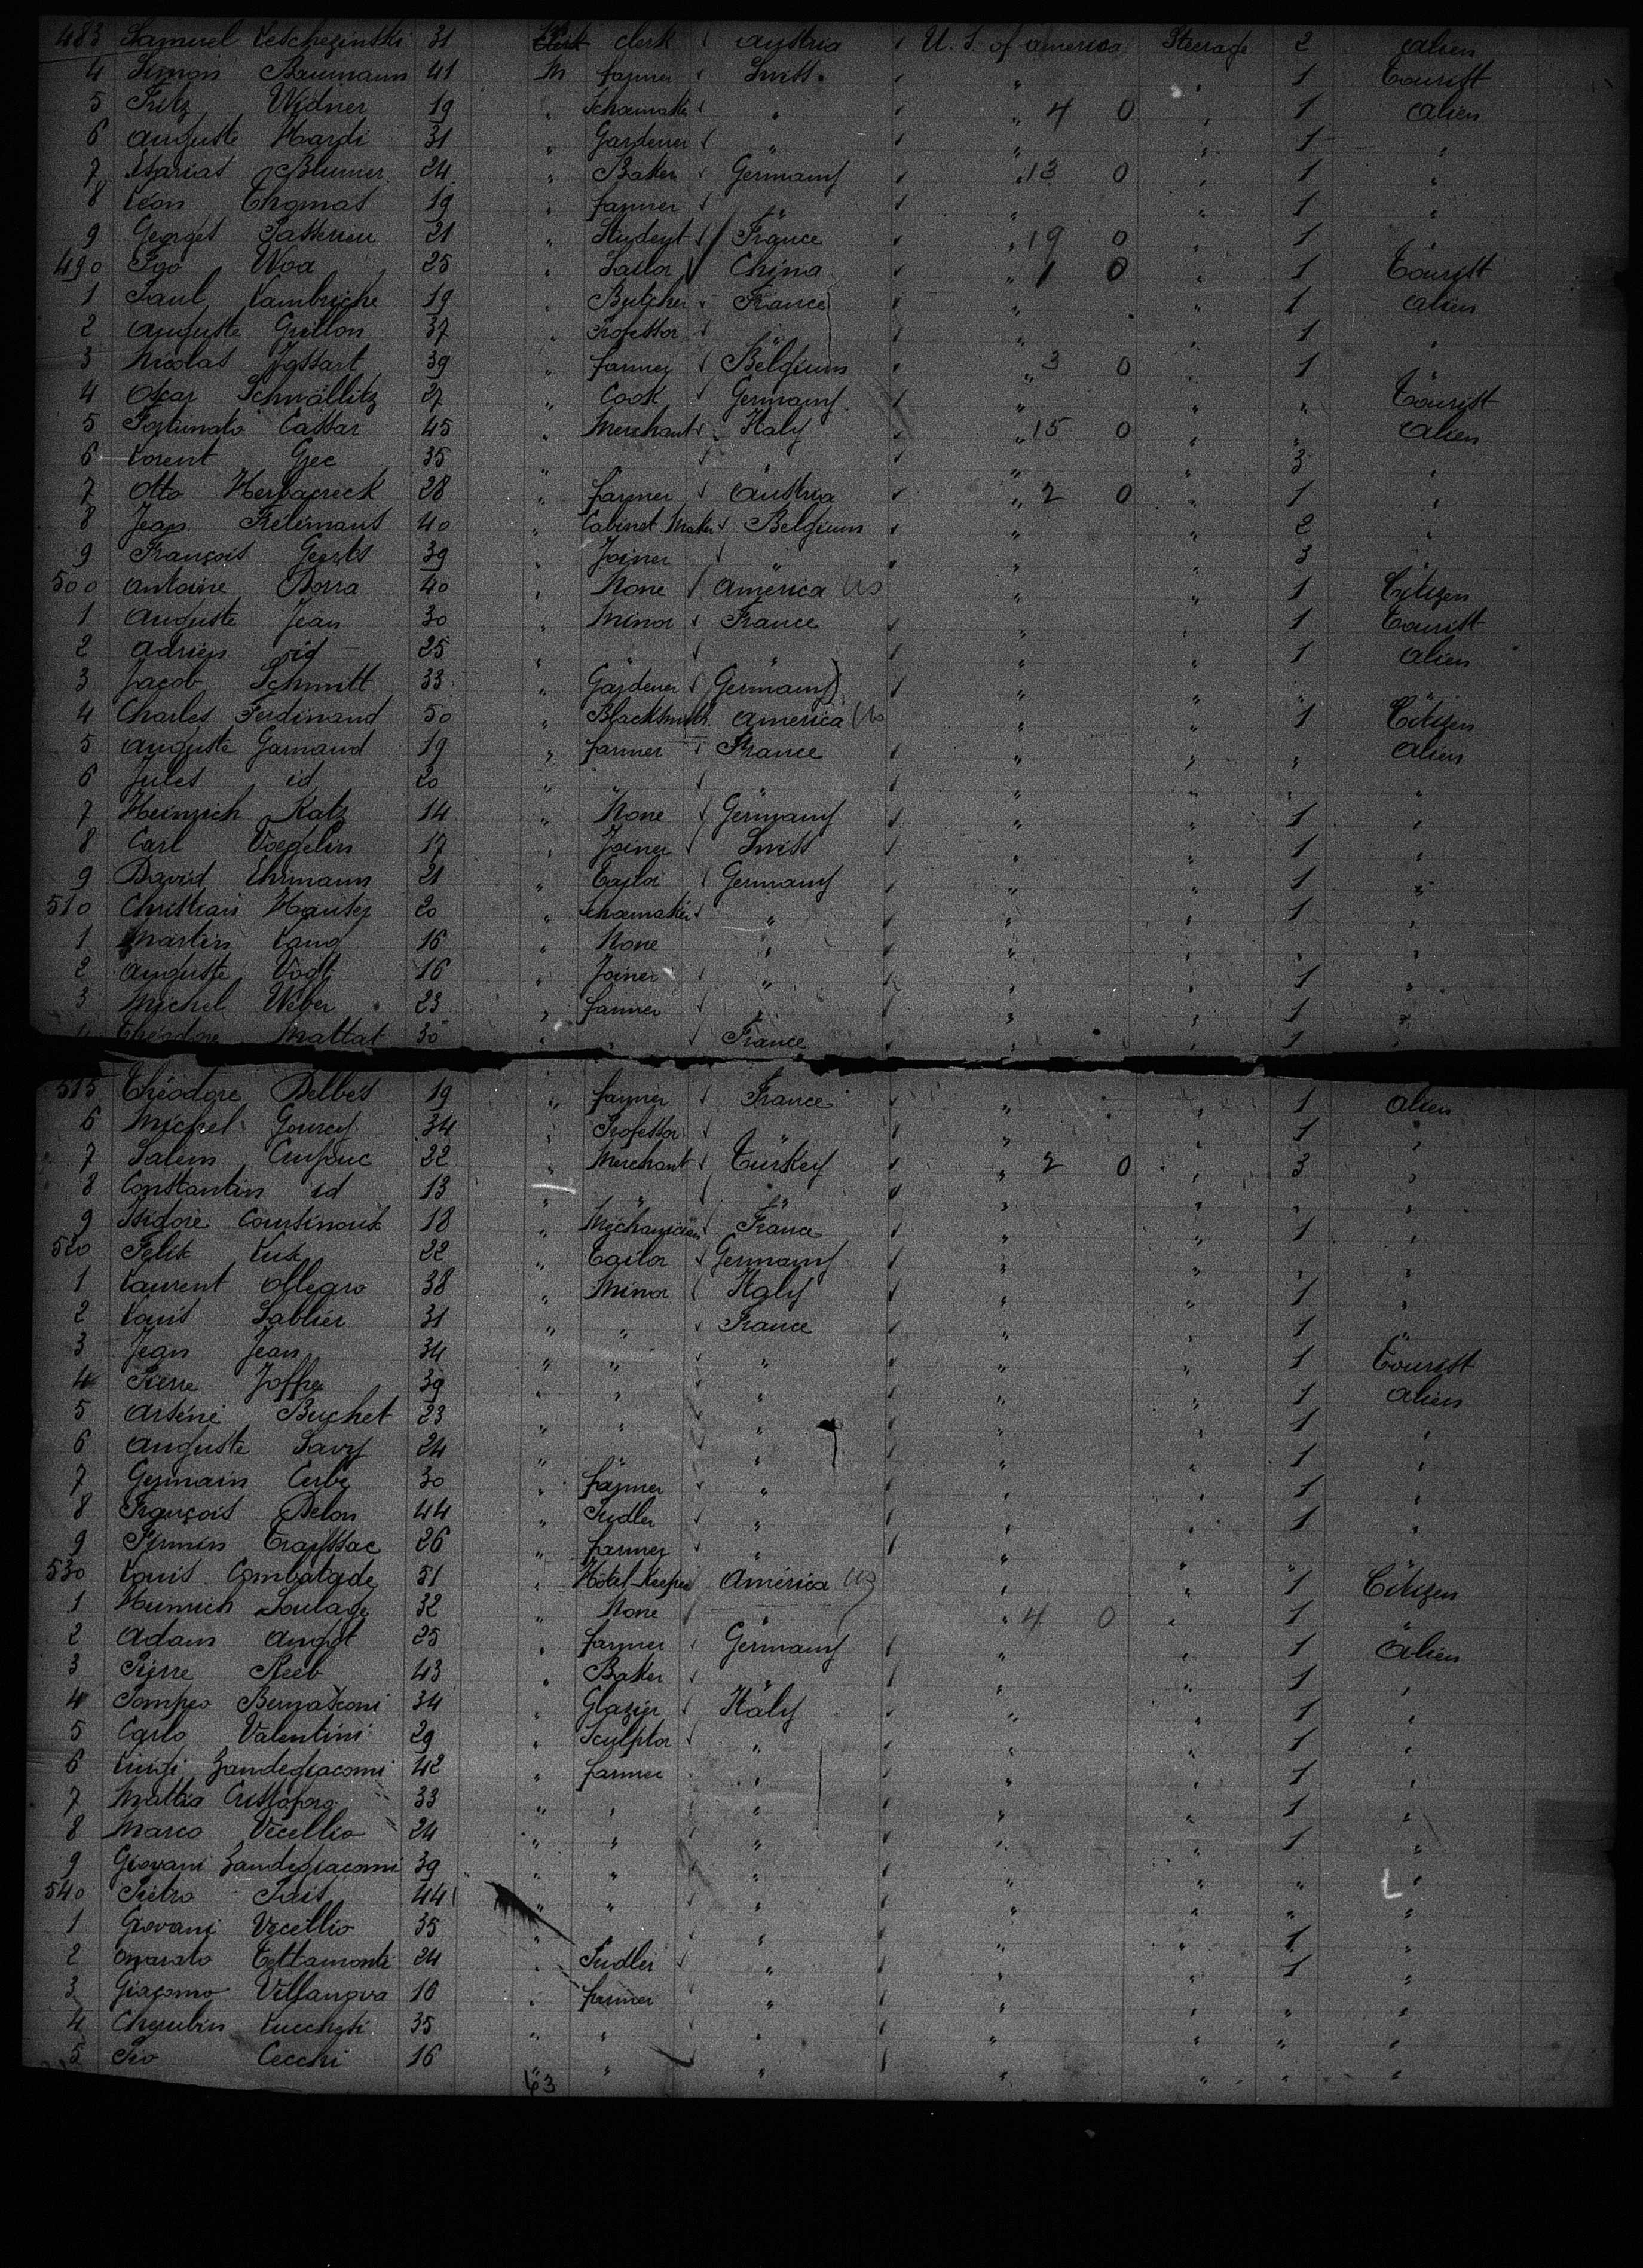 483 Samuel Leschezinski 31 clerk Austria U. S. of america Steerage 2 alien
4 Simon Baumann 41 M farmer Swiss " " 1 Tourist
5 Fritz Widner 19 " Schoemaker " " 4 0 " 1 alien
6 Auguste Hardi 31 " Gardener " " " 1 "
7 Blumer 24 " Baker Germany " 13 0 " 1 "
8 Léon Thomas 19 " farmer " " " 1 "
9 Georges 21 " Student France " 19 0 " 1 "
490 Woa 25 " China " 1 0 " 1 Tourist
1 Paul Lambriche 19 " Butcher France " " 1 alien
2 Auguste Grillon 37 " Professor " " " 1 "
3 Nicolas Jossart 39 " farmer Belgium " 3 0 " 1 "
4 Oscar Schwällitz 27 " Cook Germany " " " Tourist
5 Fortunato Cassar 45 " Merchant Italy " 15 0 " " alien
6 Lorent Grec 35 " " " 3 "
7 Otto 28 " farmer Austria " 2 0 " 1 "
8 Jean 40 " Cabinet Maker Belgium " " 2 "
9 François Geerts 39 " Joiner " " " 3 "
500 Antoine Borra 40 " None America US " " 1 Citizen
1 Auguste Jean 30 " Minor France " " 1 Tourist
2 Adrien id 25 " " " " 1 alien
3 Jacob Schmitt 33 " Gardener Germany " " " "
4 Charles Ferdinand 50 " Blacksmith America US " " 1 Citizen
5 Auguste Garnaud 19 " farmer France " " " alien
6 Jules id 20 " " " " " " "
7 Heinrich Katz 14 " None Germany " " 1 "
8 Carl Voegelin 17 " Joiner Swiss " " 1 "
9 David Ehrmann 21 " Tailor Germany " " 1 "
510 Christian Hauser 20 " Schoemaker " " " 1 "
1 Martin Lang 16 " None " " " " "
2 Auguste Vogt 16 " Joiner " " " 1 "
3 Michel Weber 23 " farmer " " " 1 "
4 Théodore Mattat 30 " " France " " 1 "
515 Théodore Delbés 19 " farmer France " " 1 alien
6 Michel Gourcy 34 " Professor " " " 1 "
7 Salem 22 " Merchant Turkey " 2 0 " 3 "
8 Constantin id 13 " " " " " " "
9 Isidore 18 " Mechanician France " " 1 "
520 Felix Lux 22 " Tailor Germany " " " "
1 Laurent Ollegro 38 " Minor Italy " " 1 "
2 Louis Sablier 31 " " France " " 1 "
3 Jean Jean 34 " " " " " 1 Tourist
4 Pierre Joffre 39 " " " " " 1 alien
5 Arséne Buchet 23 " " " " " 1 "
6 Auguste Savy 24 " " " " " 1 "
7 Germain 30 " farmer " " " 1 "
8 François Delon 44 " " " " 1 "
9 Firmin Trayssac 26 " farmer " " " " "
530 Louis Combatade 51 " Hôtel-Keeper America US " " 1 Citizen
1 Heinrich Soulage 32 " None " " 4 0 " 1 "
2 Adam 25 " farmer Germany " " 1 alien
3 Pierre Reeb 43 " Baker " " " 1 "
4 Pompeo Bernasconi 34 " Glazier Italy " " 1 "
5 Carlo Valentini 29 " Sculptor " " " 1 "
6 Luigi Zandegiacomi 42 " farmer " " " 1 "
7 Mattia Cristoforo 33 " " " " " 1 "
8 Marco Vecellio 24 " " " " " 1 "
9 Giovani Zandegiacomi 39 " " " " " " "
540 Pietro 44 " " " " " " "
1 Giovani Vecellio 35 " " " " 1 "
2 Tettamonti 24 " " " " 1 "
3 Giacomo Villanova 16 " farmer " " " " "
4 Cherubin Lucchesi 35 " " " " " " "
5 Pio Cecchi 16 " " " " " " "
63